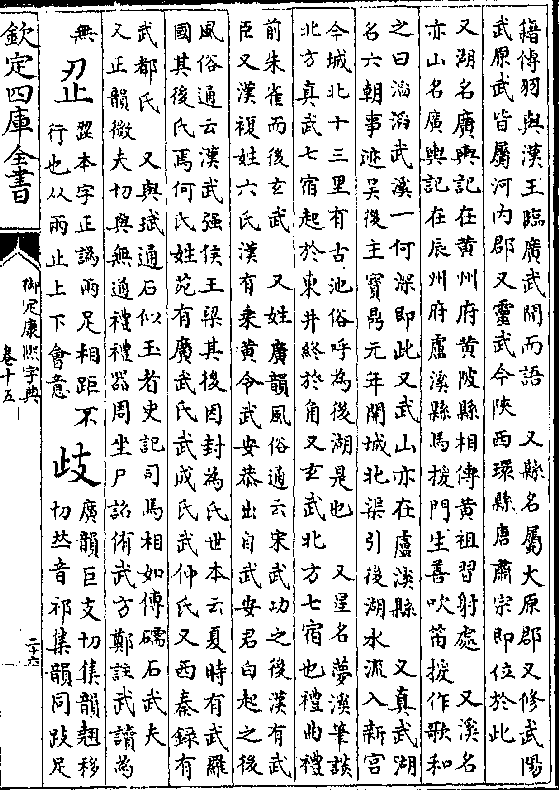 籍傅羽與漢王臨廣武閒而語　又縣名屬大原郡又修武陽
武原武皆屬河內郡又靈武今陜西環縣唐肅宗即位於此
又湖名廣輿記在黃州府黃陂縣相傳黃祖習射處　又溪名
亦山名廣輿記在辰州府盧溪縣馬援門生善吹笛援作歌和
之曰滔滔武溪一何深即此又武山亦在盧溪縣　又真武湖
名六朝事迹吳後主寶鼎元年開城北渠引後湖水流入新宮
今城北十三里有古池俗呼為後湖是也　又星名夢溪筆談
北方真武七宿起於東井終於角又玄武北方七宿也禮曲禮
前朱雀而後玄武　又姓廣韻風俗通云宋武功之後漢有武
臣又漢複姓六氏漢有乗黃令武安恭出自武安君白起之後
風俗通云漢武强侯王梁其後因封為氏世本云夏時有武羅
國其後氏焉何氏姓苑有廣武氏武成氏武仲氏又西秦錄有
武都氏　又與珷通石似玉者史記司馬相如傳礝石武夫
又正韻微夫切與無通禮禮器周坐尸詔侑武方鄭註武讀為
無　歰本字正譌兩足相距不
行也从兩止上下會意
歧　廣韻巨支切集韻翹移
切𠀤音祁集韻同跂足
欽定四庫全書
御定康熙字典
卷十五
二十六